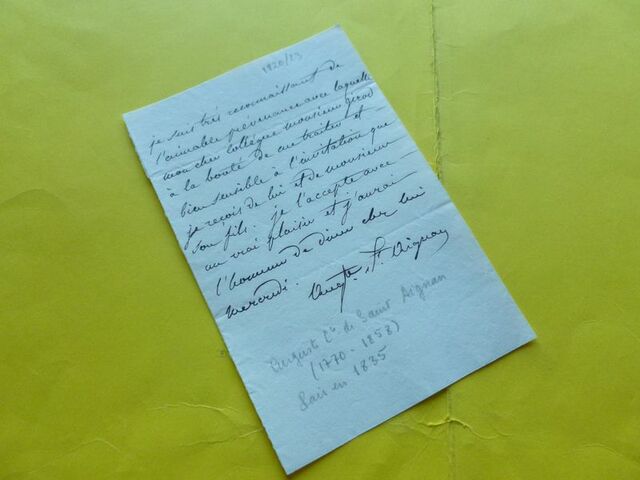 1820/23
je suis très reconnaissant de
l'aimable prévenance avec laquelle
mon cher collègue monsieur girod
à la bonté de me traiter et
bien sensible à l'invitation que
je reçois de lui et de monsieur
son fils. je l'accepte avec
un vrai plaisir et j'aurai
l'honneur de diner chez lui
mercredi.
Augte St. Aignan
Auguste Cte de Saint Aignan
(1770-1858)
Pair en 1835